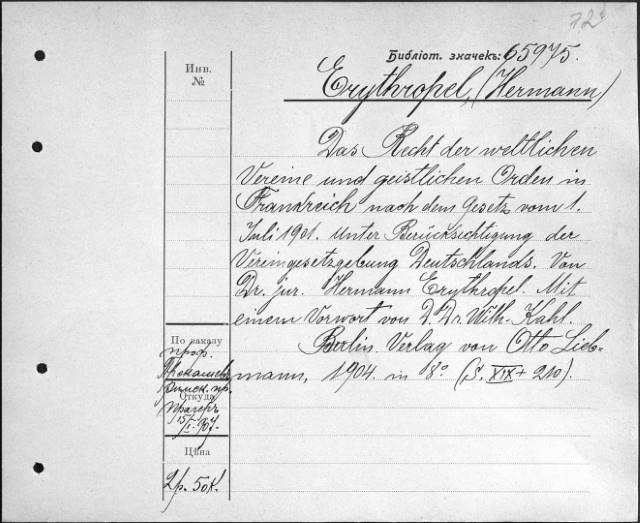 Библіот. значекъ: 65975.
Инв.
№
Erythropel, (Hermann)
Das Recht der weltlichen
Vereine und geistlichen Orden in
Frankreich nach dem Gesetz vom 1.
Juli 1901. Unter Berücksichtigung der
Vereingesetzgebung Deutschlands. Von
Dr. jur. Hermann Erythropel. Mit
einem Vorwort von D. Dr. Wilh. Kahl.
Berlin. Verlag von Otto Lieb-
mann, 1904. in 8º (S. XIX + 210).
По заказу
проф.
Римск. пр.
Откуда
Прагеръ
15/I 907.
Цѣна
2р. 50к.